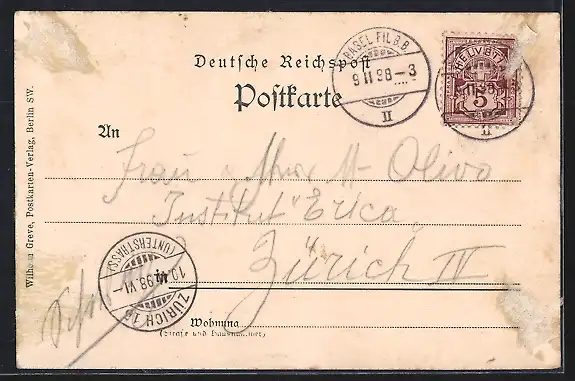 Deutsche Reichspost
Postkarte
BASEL FIL. B.B.
9 II 98 – 3
II
HELVETIA
5
II
An
Frau
Oliva
Institut "Erica"
Zürich IV
ZÜRICH 16
(UNTERSTRASS)
98. VI –
Wohnung
(Straße und Hausnummer)
Wilhelm Greve, Postkarten-Verlag, Berlin SW.